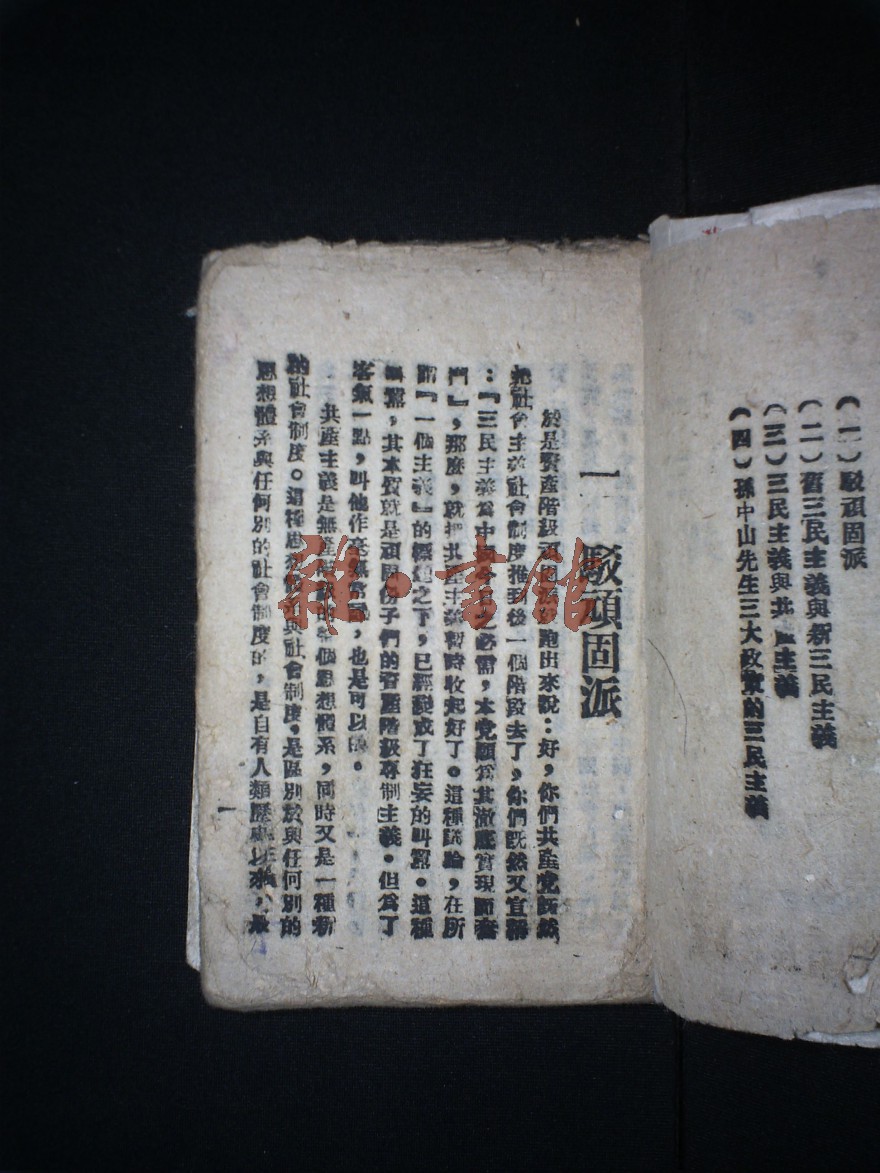 (一)駁頑固派
(二)舊三民主義與新三民主義
(三)三民主義與共產主義
(四)孫中山先生三大政策的三民主義
一 駁頑固派
於是資產階級頑固派就跑出來說：好，你們共產黨既然
把社會主義社會制度推到後一個階段去了，你們既然又宣稱
：『三民主義爲中國今日之必需，本黨願爲其澈底實現而奮
鬥』，那麽，就把共產主義暫時收起好了。這種議論，在所
謂『一個主義』的標題之下，已經變成了狂妄的叫囂。這種
叫囂，其本質就是頑固份子們的資產階級專制主義。但爲了
客氣一點，叫他作毫無常識，也是可以的。
共產主義是無產階級的整個思想體系，同時又是一種新
的社會制度。這種思想體系與社會制度，是區別於與任何別的
思想體系與任何別的社會制度的，是自有人類歷史以來，最
一
雜·書館